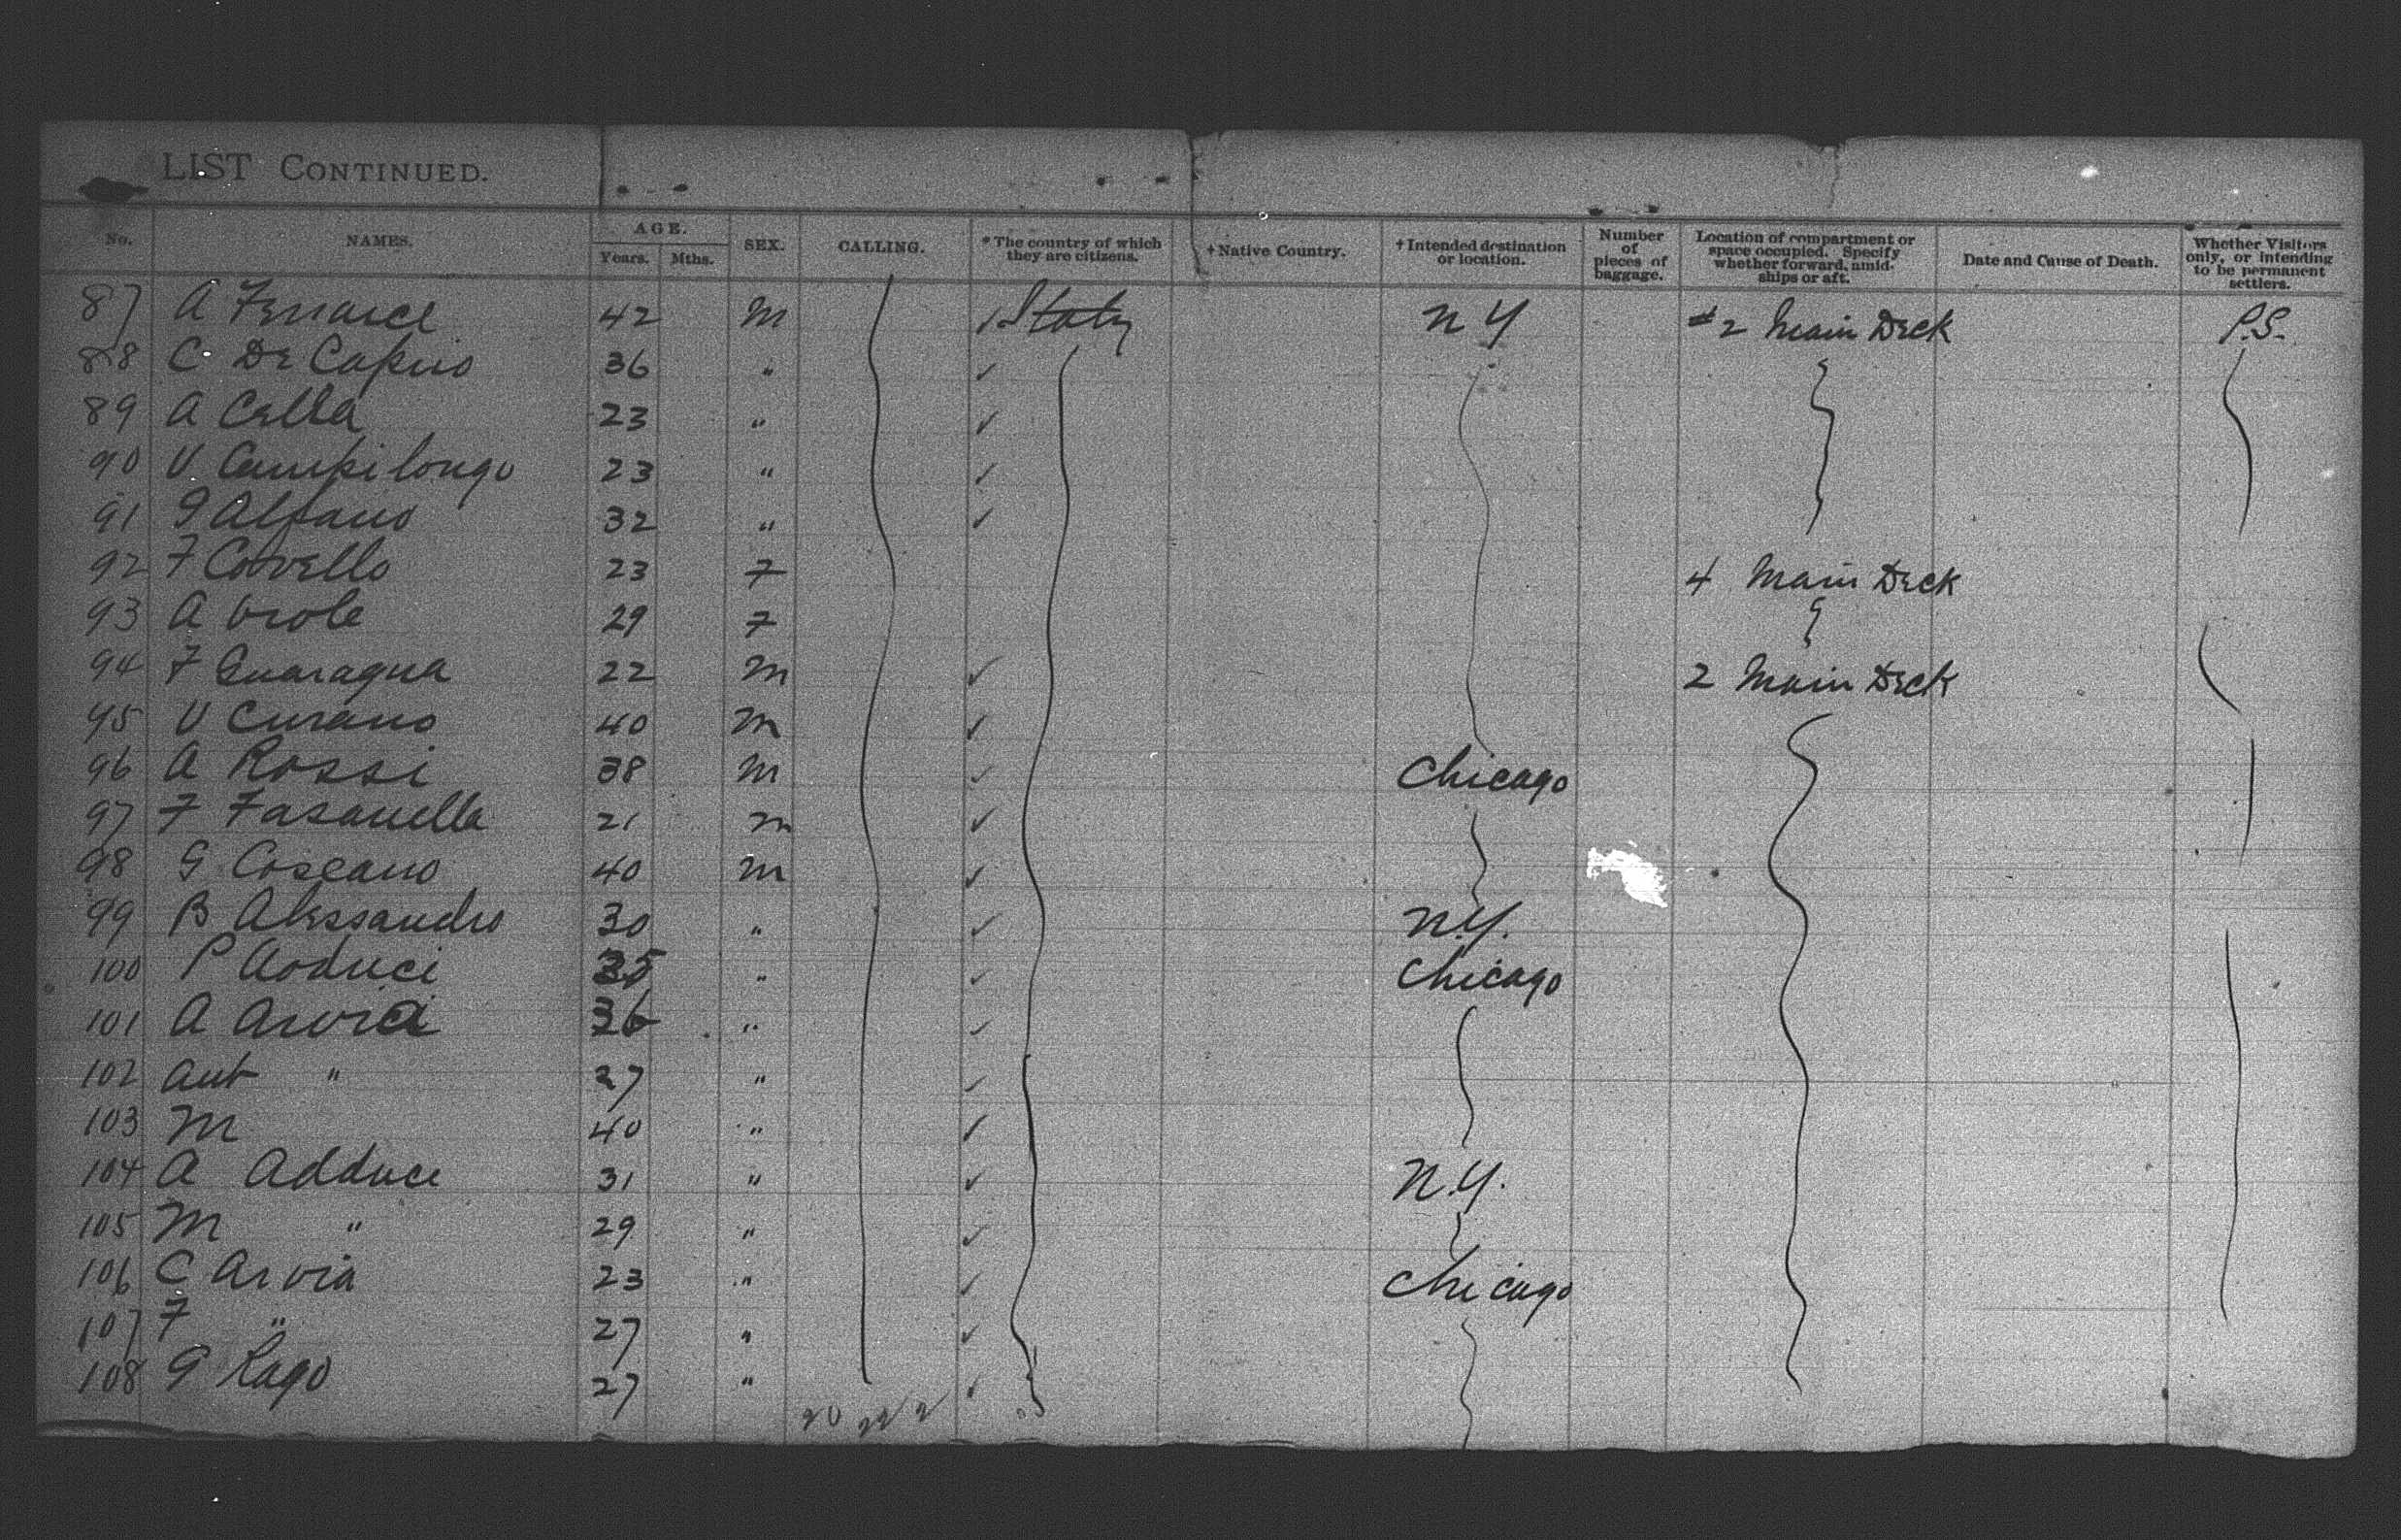 LIST CONTINUED.
No. NAMES. AGE. Years. Mths. SEX. CALLING. * The country of which they are citizens. † Native Country. † Intended destination or location. Number of pieces of baggage. Location of compartment or space occupied. Specify whether forward, amidships or aft. Date and Cause of Death. Whether Visitors only, or intending to be permanent settlers.
87 A 42 M Italy N Y #2 Main Deck P.S.
88 C De Capuo 36 "
89 A Cella 23 "
90 V Campilongo 23 "
91 G Alfano 32 "
92 F Covello 23 F 4 Main Deck
93 A 29 F
94 F Guaragna 22 M 2 Main Deck
95 V Curano 40 M
96 A Rossi 38 M Chicago
97 F Fasanella 21 M
98 G Coscano 40 M
99 B Alessandro 30 " N.Y.
100 P Aoduci 35 " Chicago
101 A Arvia 36 "
102 Ant " 27 "
103 M 40 "
104 A Adduce 31 " N.Y.
105 M " 29 "
106 C Arvia 23 " Chicago
107 F " 27 "
108 G Rago 27 "
20